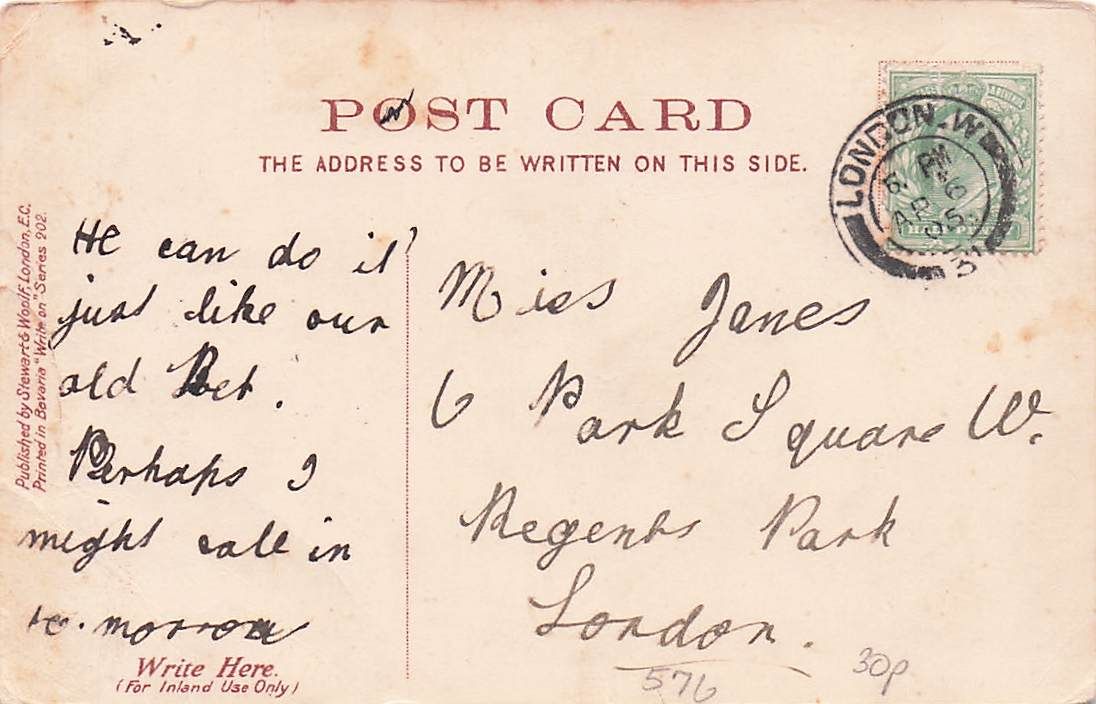 POST CARD
THE ADDRESS TO BE WRITTEN ON THIS SIDE.
LONDON. W
PM
AP 6
05
31
HALFPENNY
Published by Stewart & Woolf, London, E.C.
Printed in Bavaria "Write on" Series 202.
He can do it
just like our
old Bet.
Perhaps I
might call in
to-morrow
Write Here.
(For Inland Use Only)
Miss Janes
6 Park Square W.
Regents Park
London.
576
30p